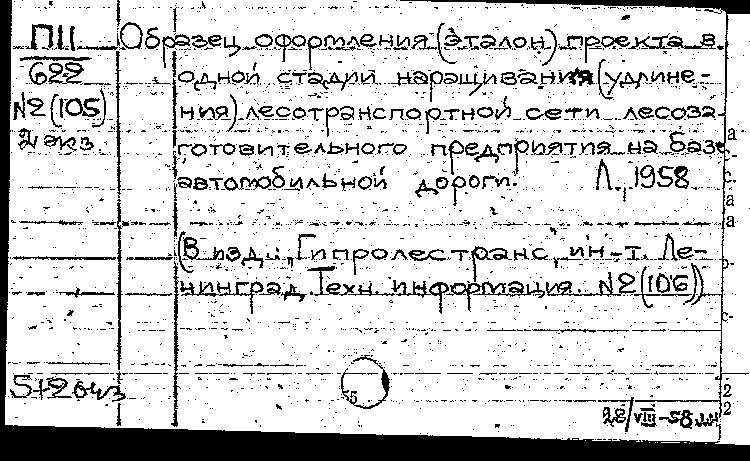 ПII
622
№2(105)
2 экз.
Образец оформления (эталон) проекта в
одной стадии наращивания (удлине-
ния) лесотранспортной сети лесоза-
готовительного предприятия на базе
автомобильной дороги. Л., 1958
(В изд.: „Гипролестранс", ин-т. Ле-
нинград. Техн. информация. №2(106))
55
28/VIII-58